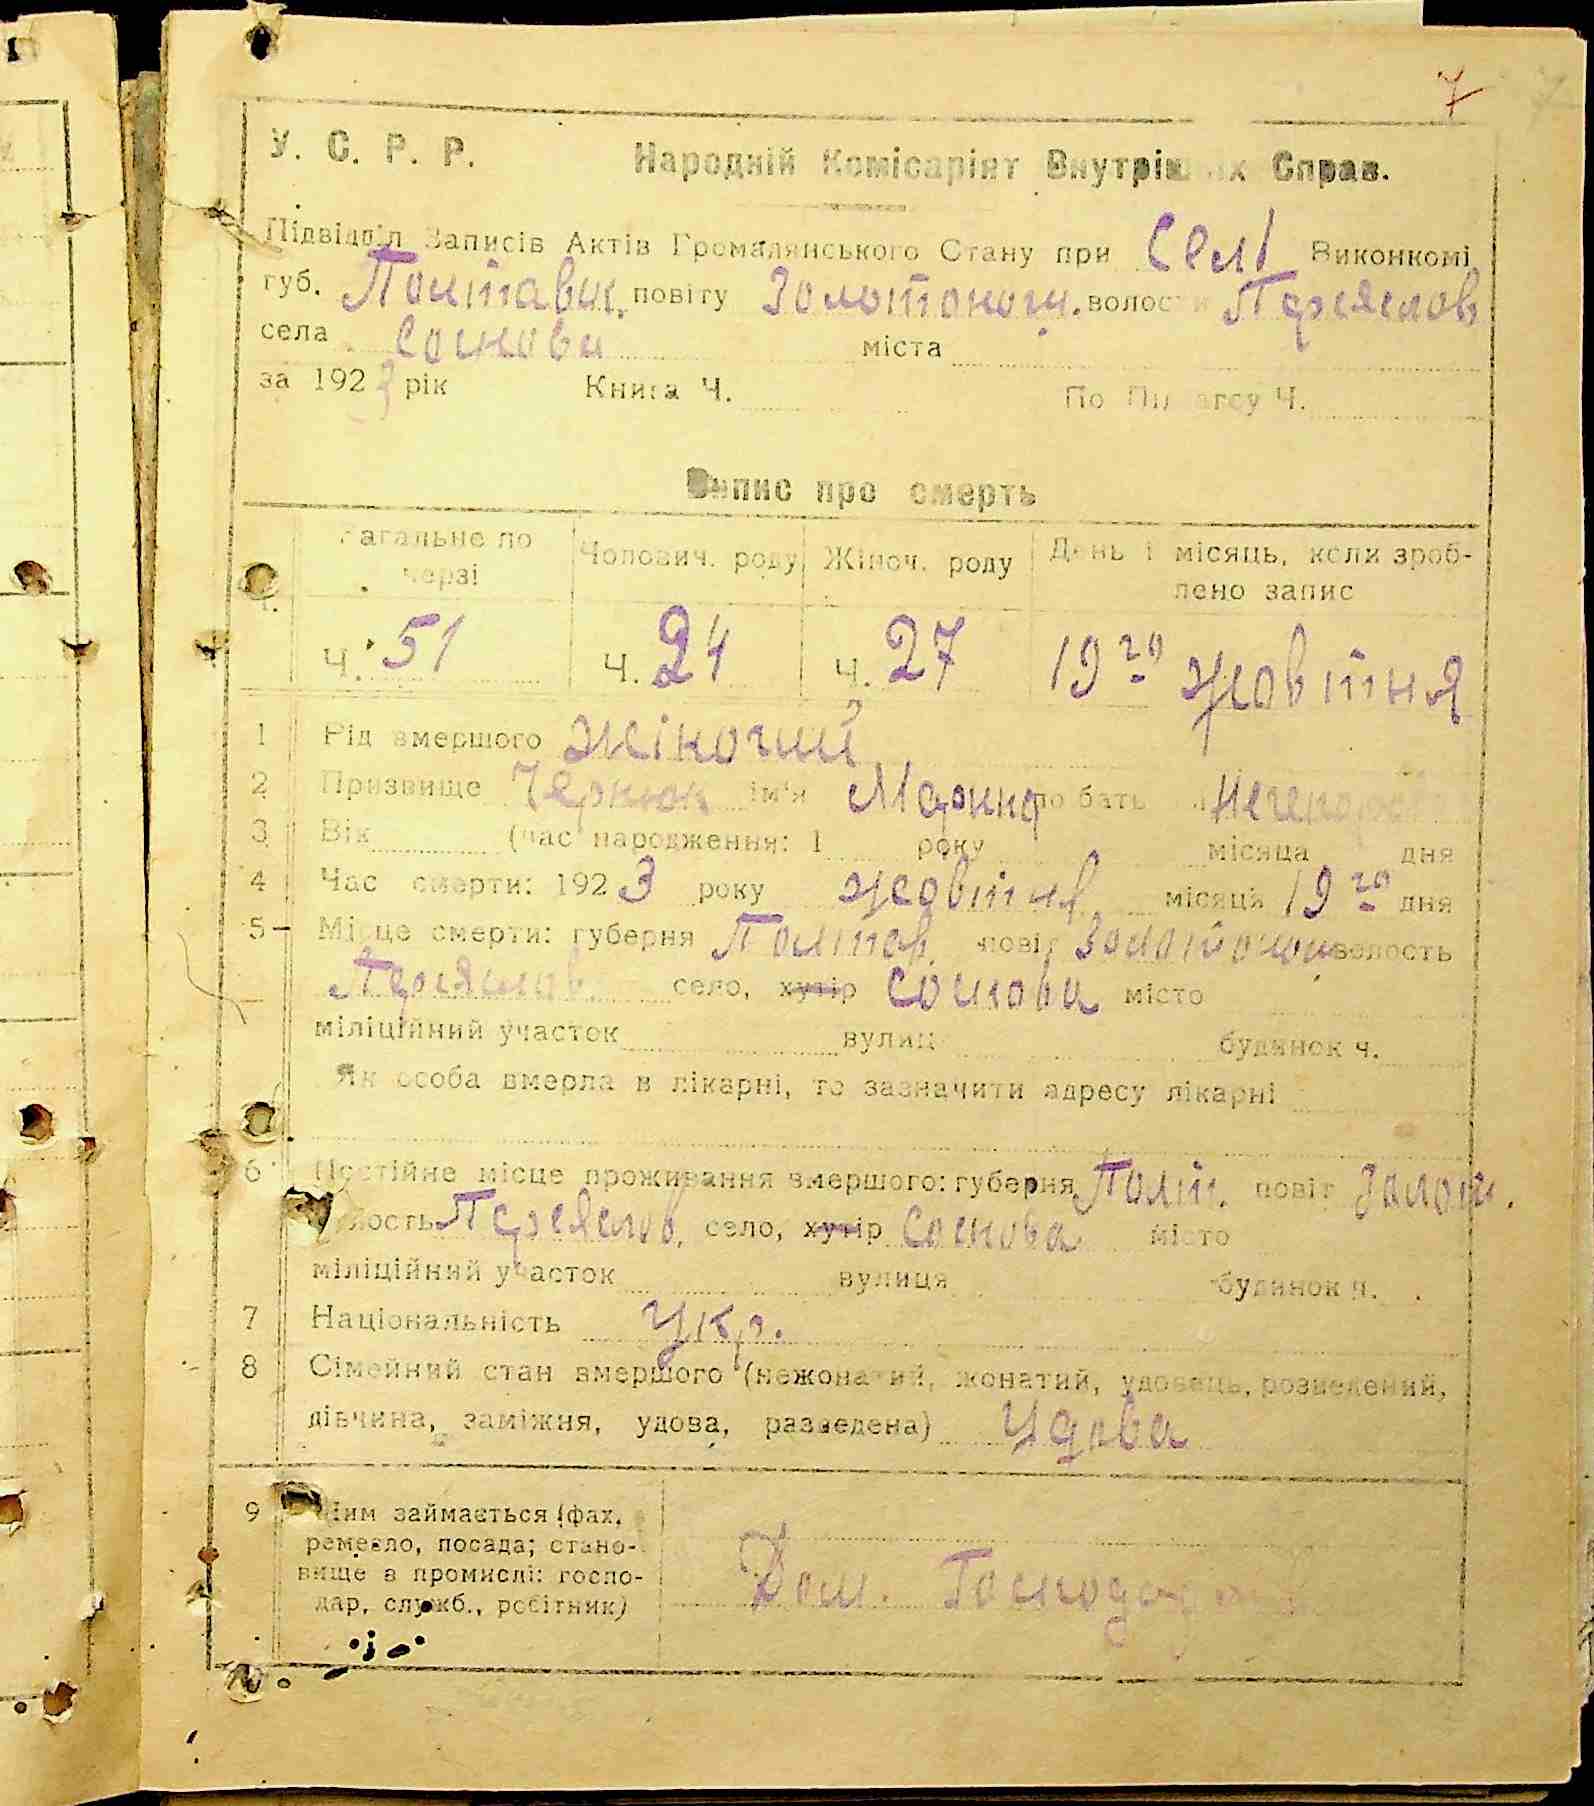 7
У. С. Р. Р. Народній Комісаріят Внутрішніх Справ.
Підвідділ Записів Актів Громадянського Стану при Сел Виконкомі
губ. Полтавск. повіту Золотонош. волости Переяслов
села Соснови міста
за 1923 рік Книга Ч. По Підзагсу Ч.
Випис про смерть
Загальне по черзі Чоловіч. роду Жіноч. роду День і місяць, коли зроб-
лено запис
Ч. 51 Ч. 24 Ч. 27 19го жовтня
1 Рід вмершого жіночий
2 Призвище ім'я Марина по бать
3 Вік (час народження: 1 року місяца дня
4 Час смерти: 1923 року жовтня місяця 19го дня
5 Місце смерти: губерня Полтав. повіт Золотонош волость
Переяслов село, хутір Соснова місто
міліційний участок вулиц будинок ч.
Як особа вмерла в лікарні, то зазначити адресу лікарні
6 Постійне місце проживання вмершого: губерня Полт. повіт Золот.
волость Переяслов. село, хутір Соснова місто
міліційний участок вулиця будинок ч.
7 Національність Укр.
8 Сімейний стан вмершого (нежонатий, жонатий, удовець, розведений,
дівчина, заміжня, удова, разведена) Удова
9 Чим займається (фах,
ремесло, посада; стано-
вище в промислі: госпо-
дар, служб., робітник)
Дом. Господар